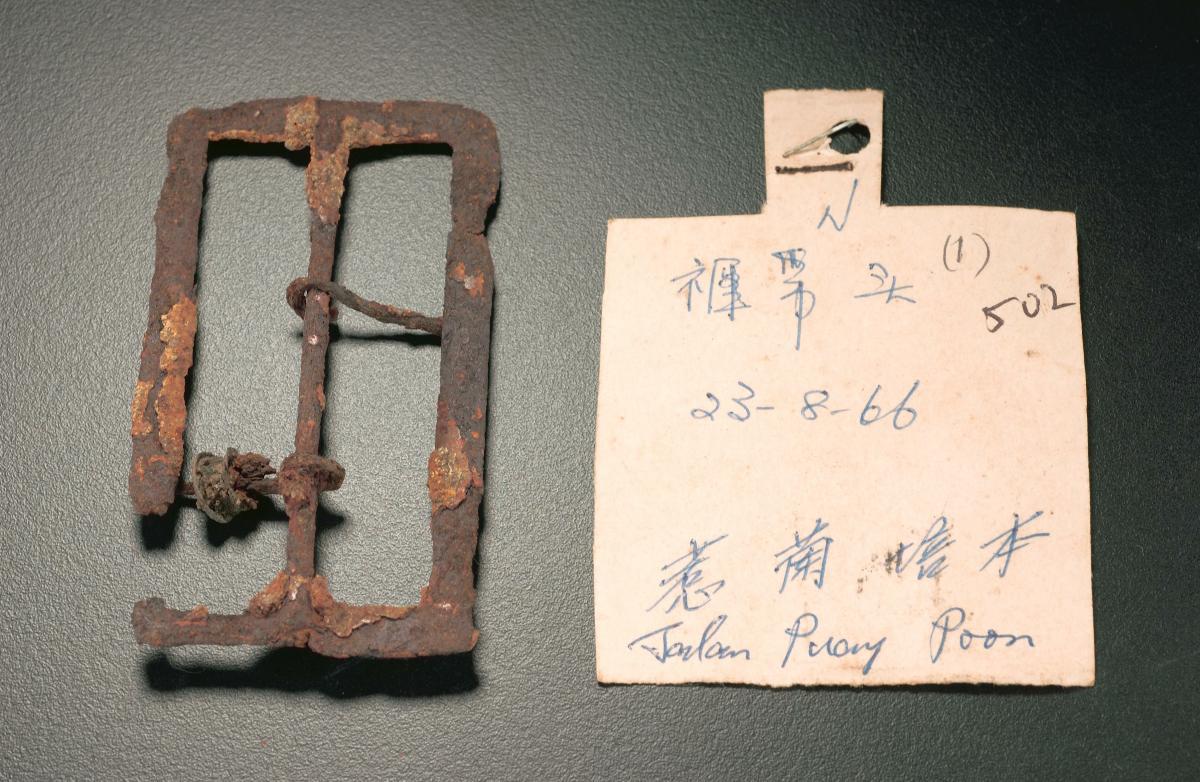 N
裤帶头 (1)
502
23-8-66
惹兰培本
Jalan Puay Poon